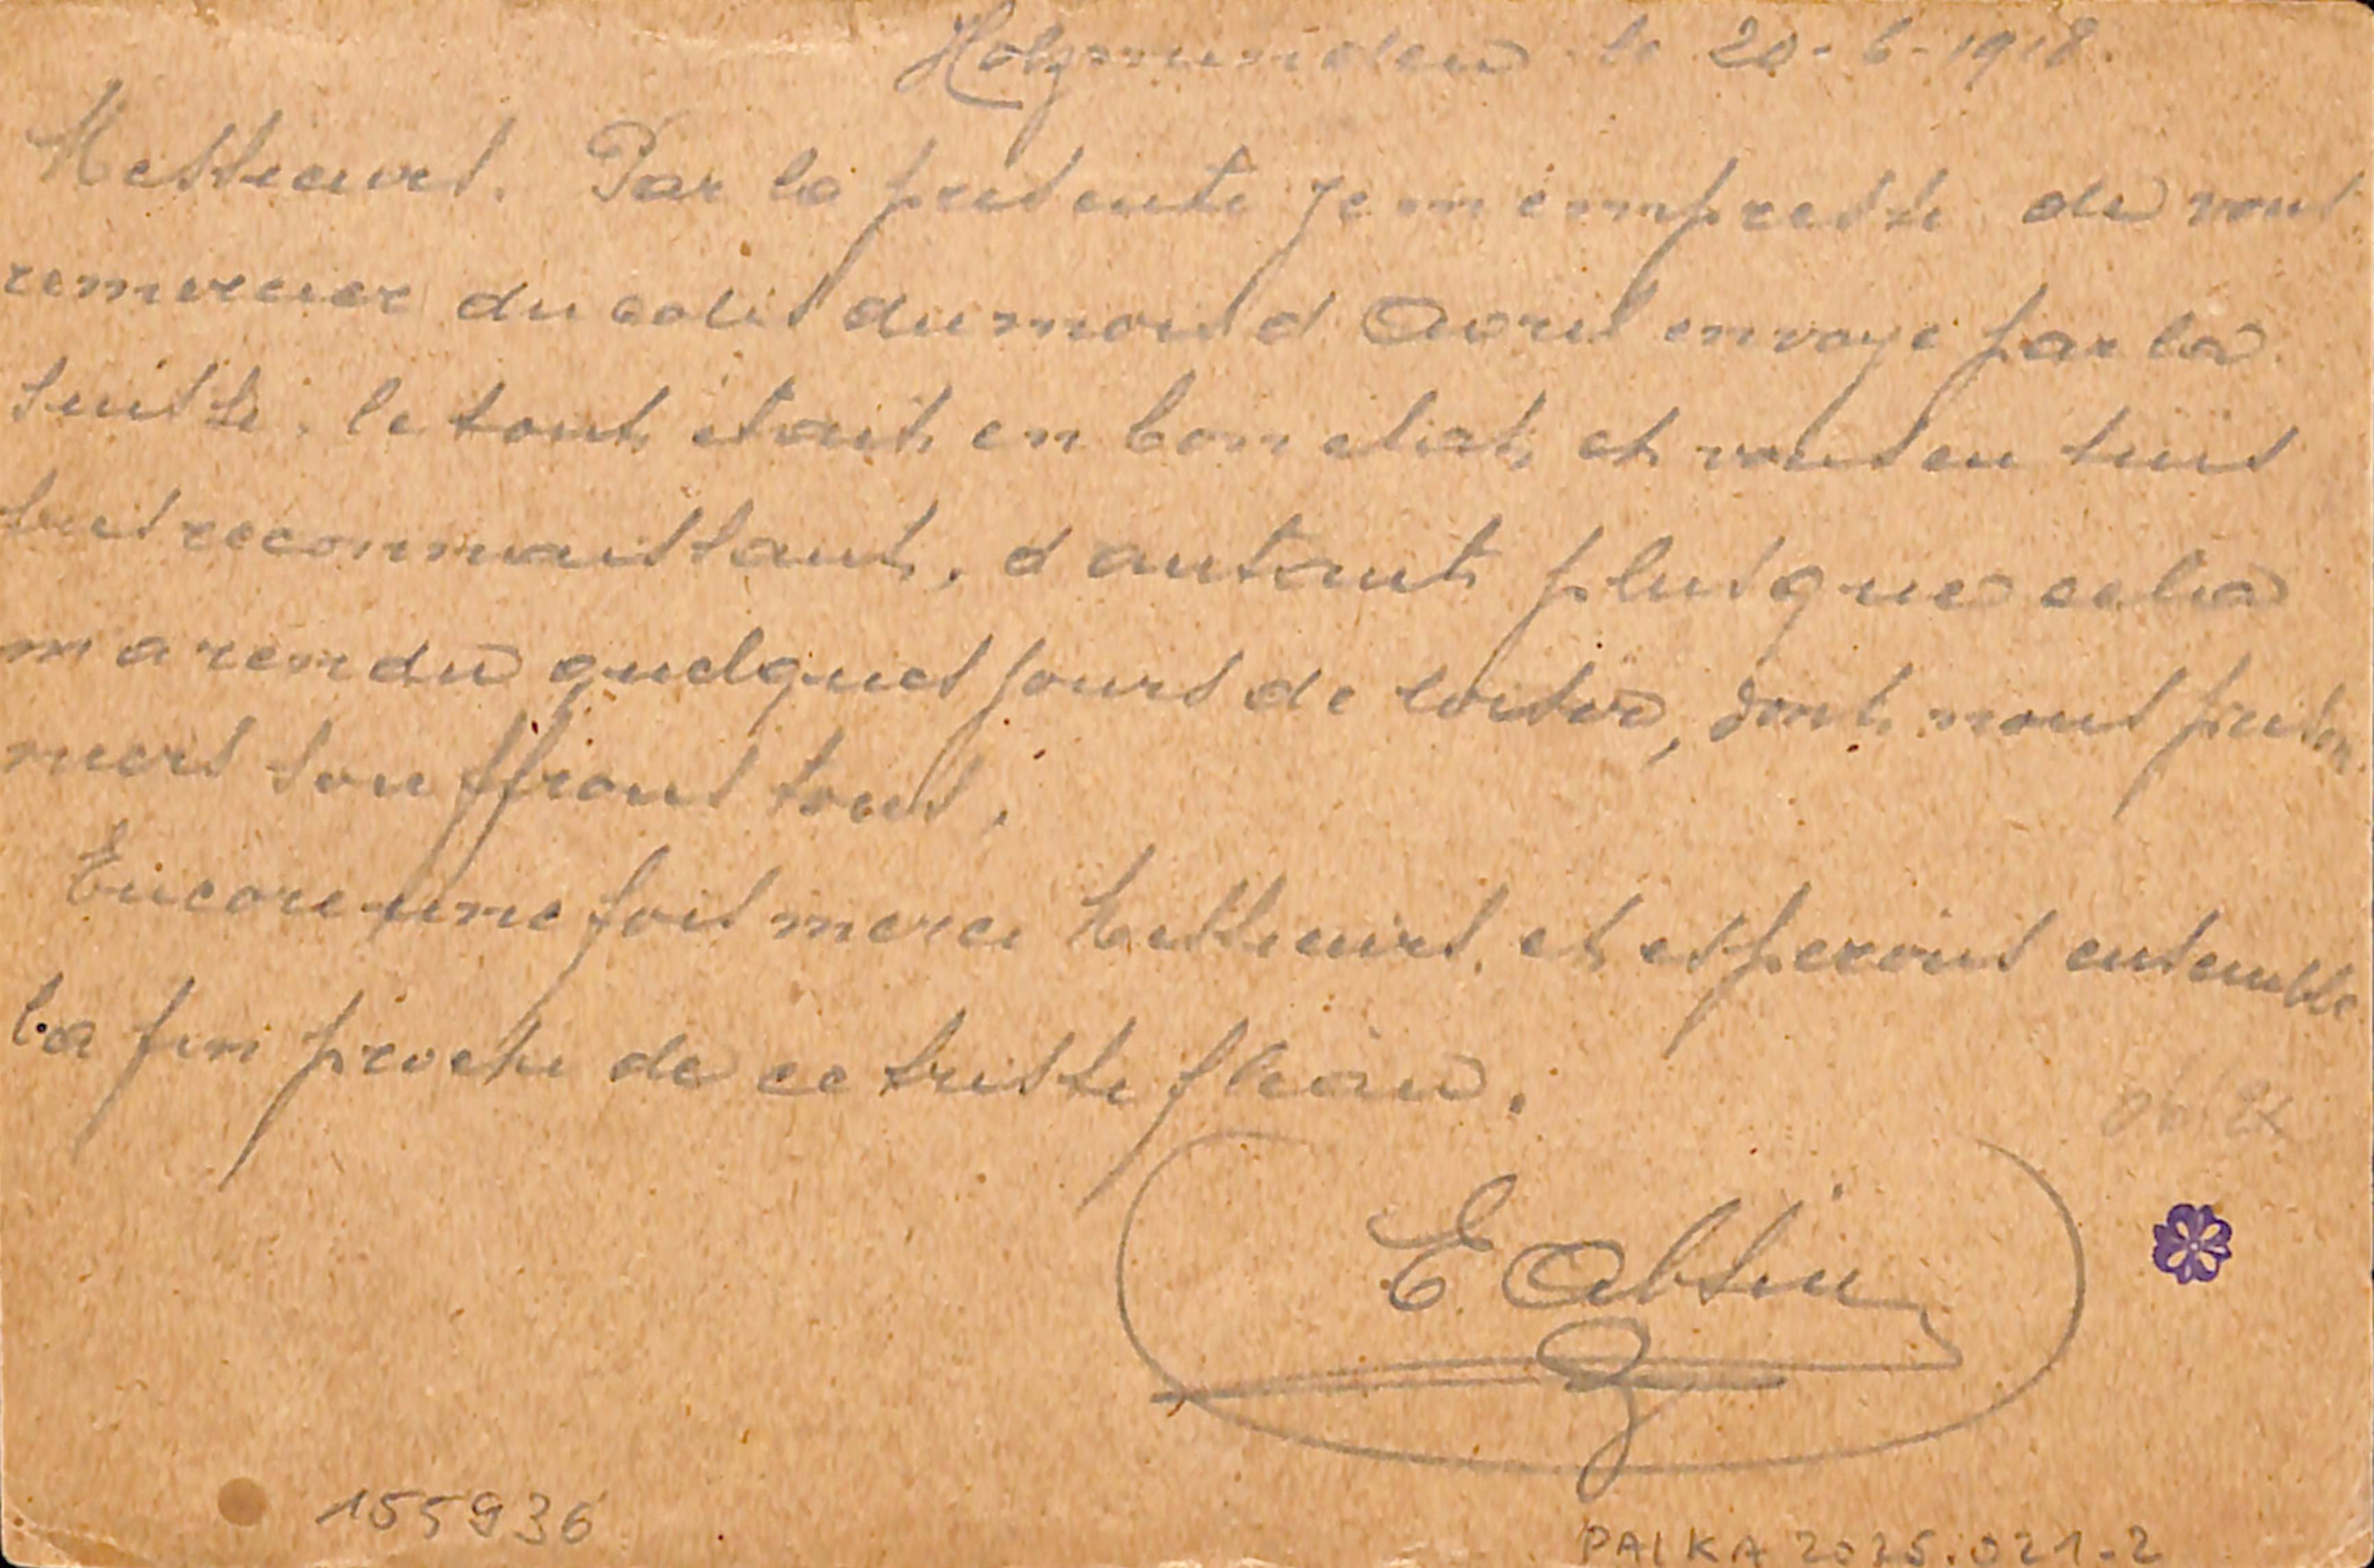 Holzminden le 20-6-1918.
Messieurs. Par la presente je m empresse de vous
remercier du colis du mois d Avril envoye par la
suisse. le tout etait en bon etat, et vous en suis
tres reconnaissant, d autant plus que cela
m a rendu quelques jours de loisir, dont nous prison
niers souffrons tous.
Encore une fois merci Messieurs, et esperons ensemble
la fin proche de ce triste fleau.
E
155936
PALKA 2025.021-2